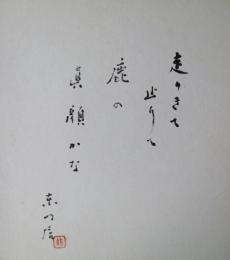 走りきて
止りて
鹿の
真顔かな